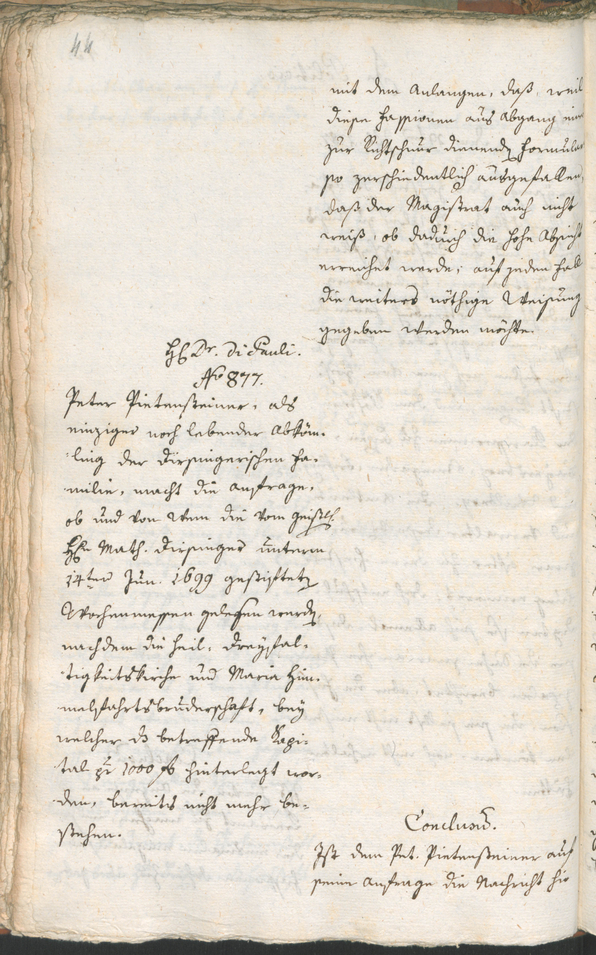 44
mit dem Anlangen, daß, weil
diese Fassionen aus Abgang einer
zur Richtschnur dienenden Formular
so zerschiedentlich ausgefallen
daß der Magistrat auch nicht
weiß, ob dadurch die hohe Absicht
erreichet werde; auf jeden Fall
die weiters nöthige Weisung
gegeben werden möchte.
H. Dr. di Pauli.
No 877.
Peter Pietensteiner, als
einziger noch lebender Abköm-
ling der Dirsingerischen Fa-
milie, macht die Anfrage,
ob und von Wem die vom geistl.
Hn Math. Dirsinger unterm
14ten Jun. 1699 gestifteten
Wochenmessen gelesen werden,
nachdem die heil. Dreyfal-
tigkeitskirche und Maria Him-
melfahrtsbruderschaft, bey
welcher das betreffende Kapi-
tal pr 1000 f hinterlegt wor-
den, bereits nicht mehr be-
stehen.
Conclusum.
Ist dem Pet. Pietensteiner auf
seine Anfrage die Nachricht hin